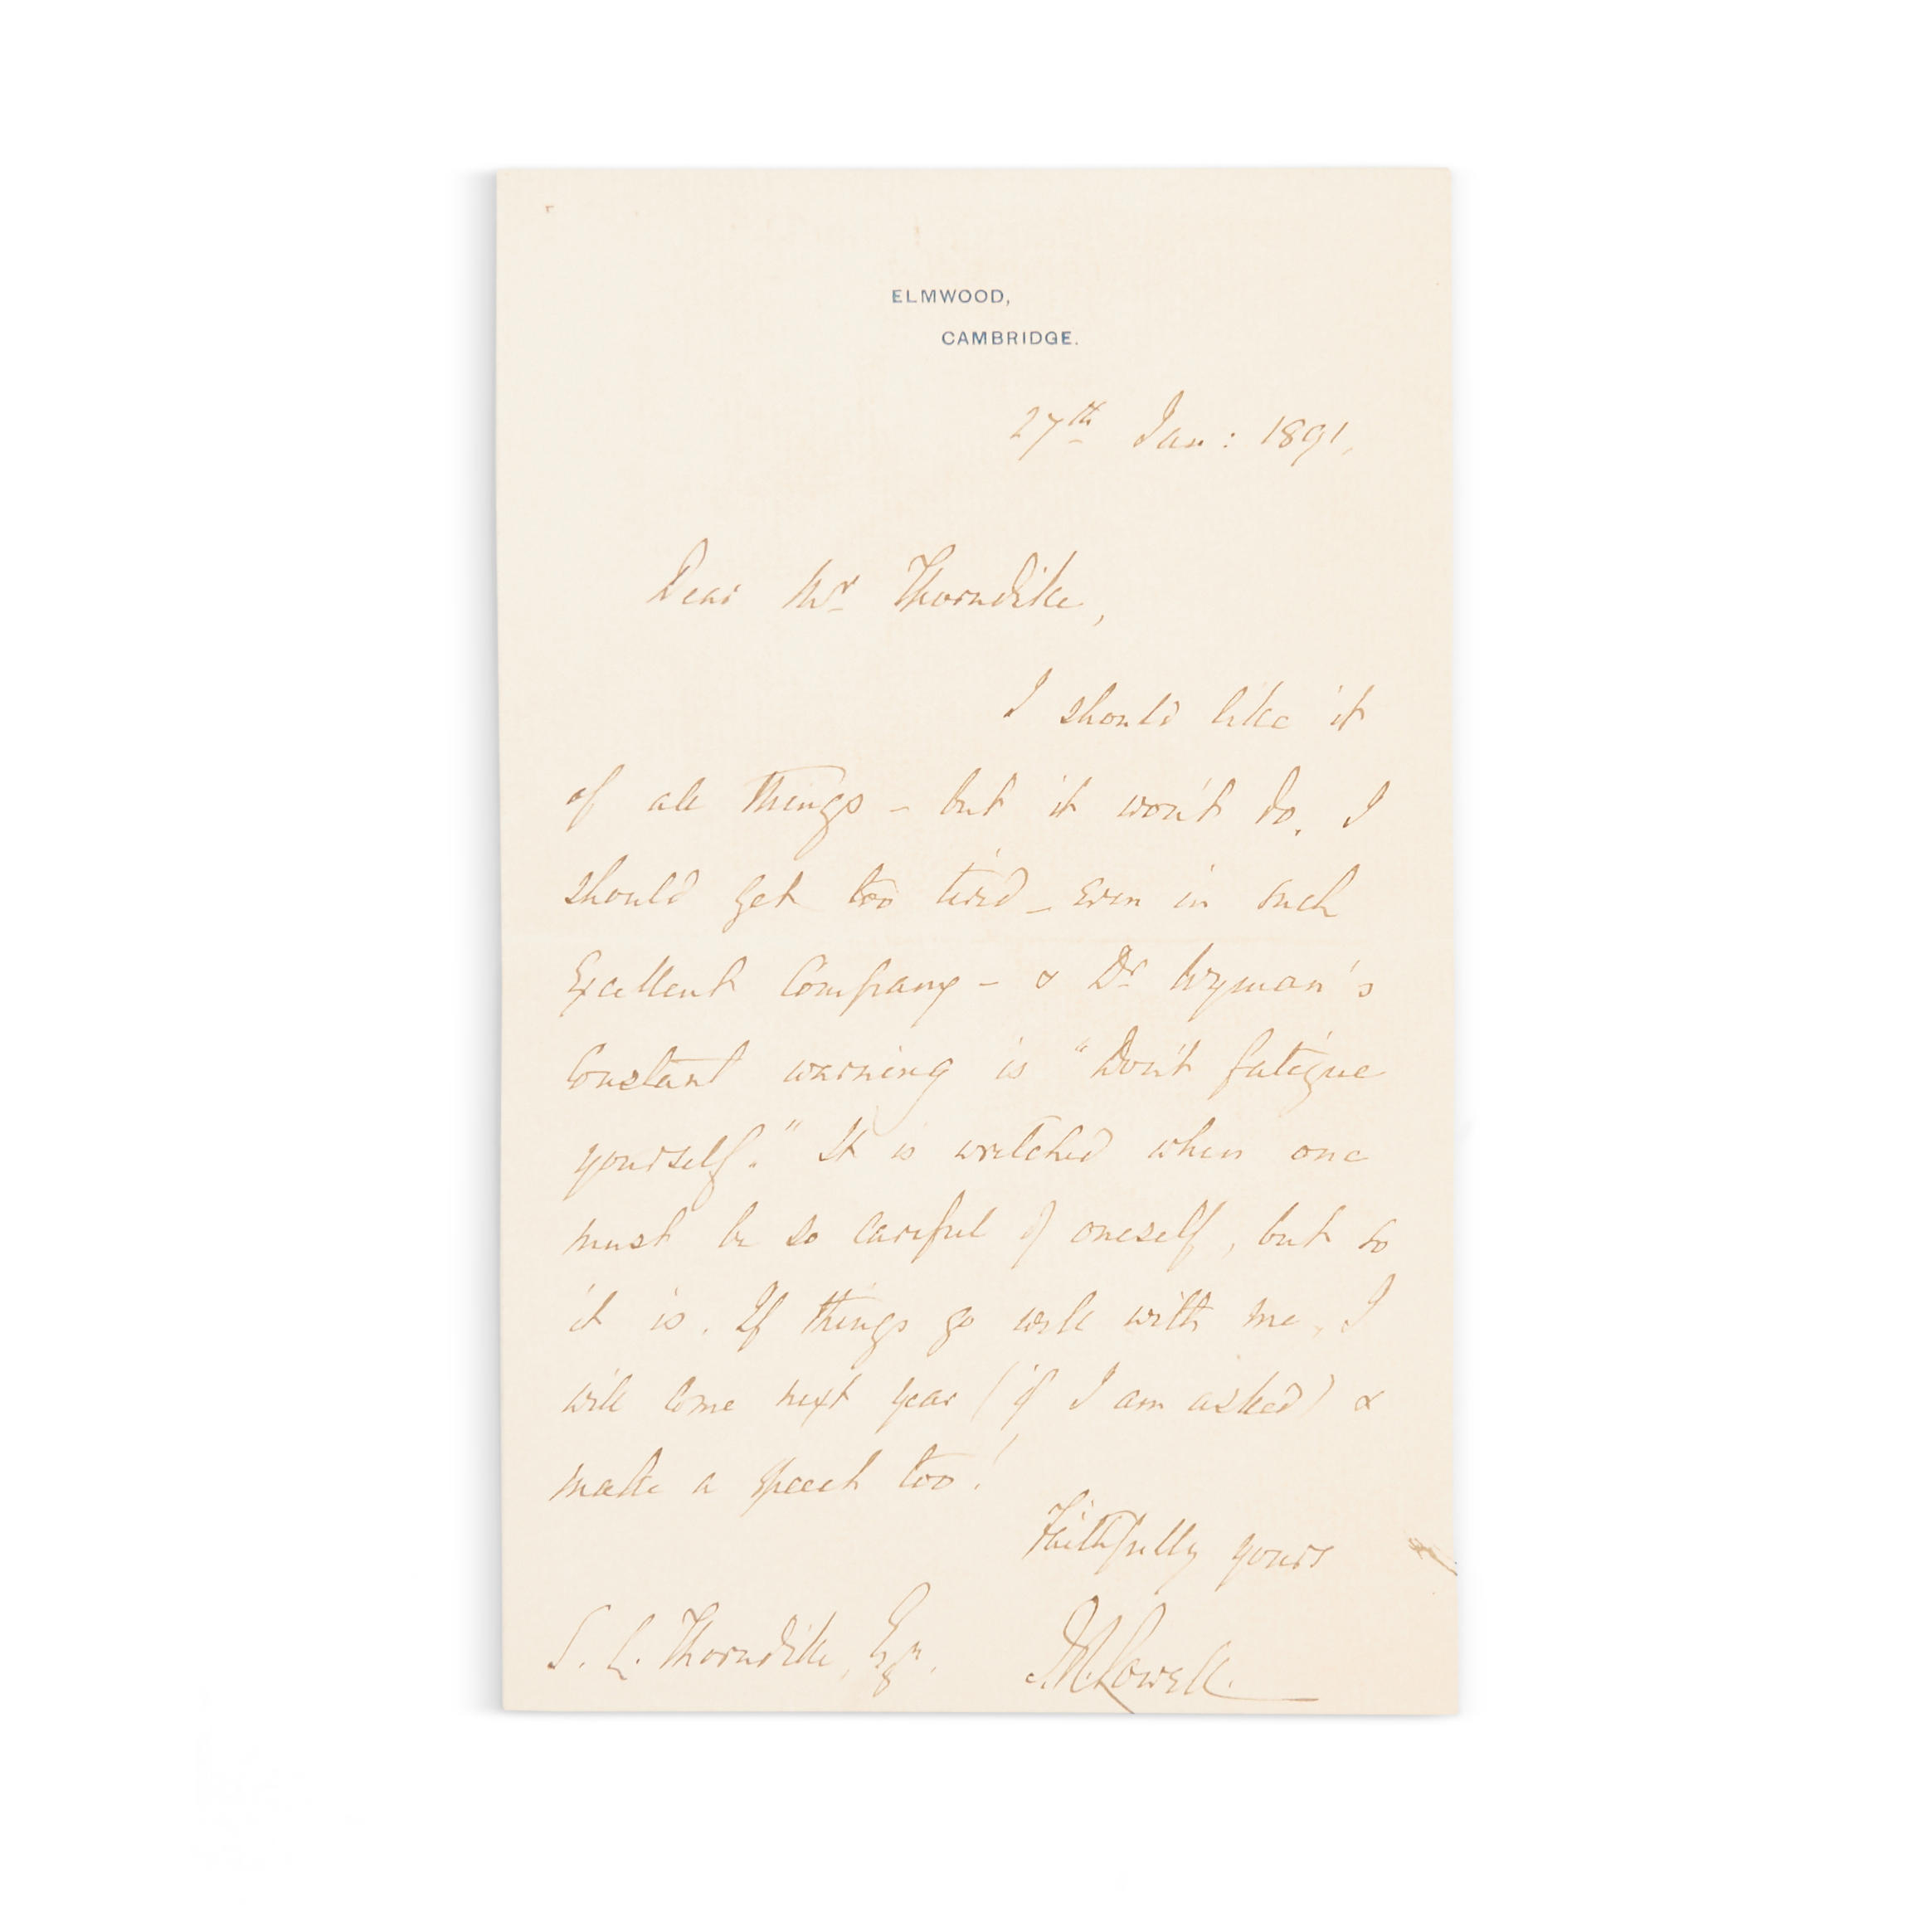 ELMWOOD,
CAMBRIDGE.
27th Jan: 1891.
Dear Mr Thorndike,
I should like it
of all things – but it won't do. I
should get too tired – even in such
excellent company – & Dr Wyman's
constant warning is "Don't fatigue
yourself." It is wretched when one
must be so careful of oneself, but so
it is. If things go well with me, I
will come next year (if I am asked) &
make a speech too!
Faithfully yours
J. R. Lowell.
S. L. Thorndike, Esqr.